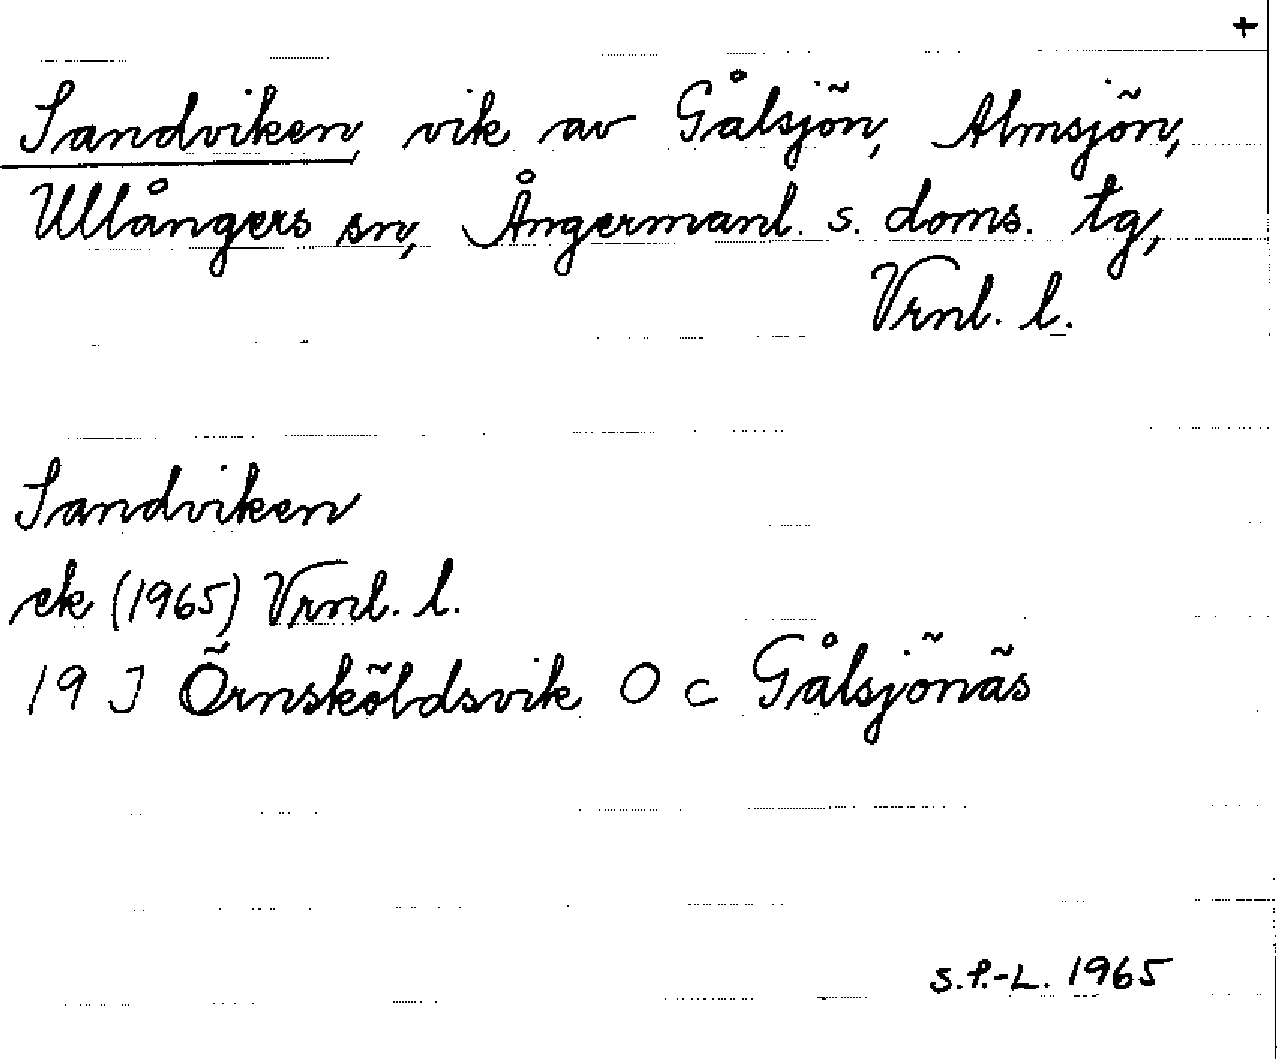 +
Sandviken, vik av Gålsjön, Almsjön,
Ullångers sn, Ångermanl. s. doms. tg,
Vrnl. l.
Sandviken
ek (1965) Vrnl. l.
19 J Örnsköldsvik O c Gålsjönäs
S.P.-L. 1965